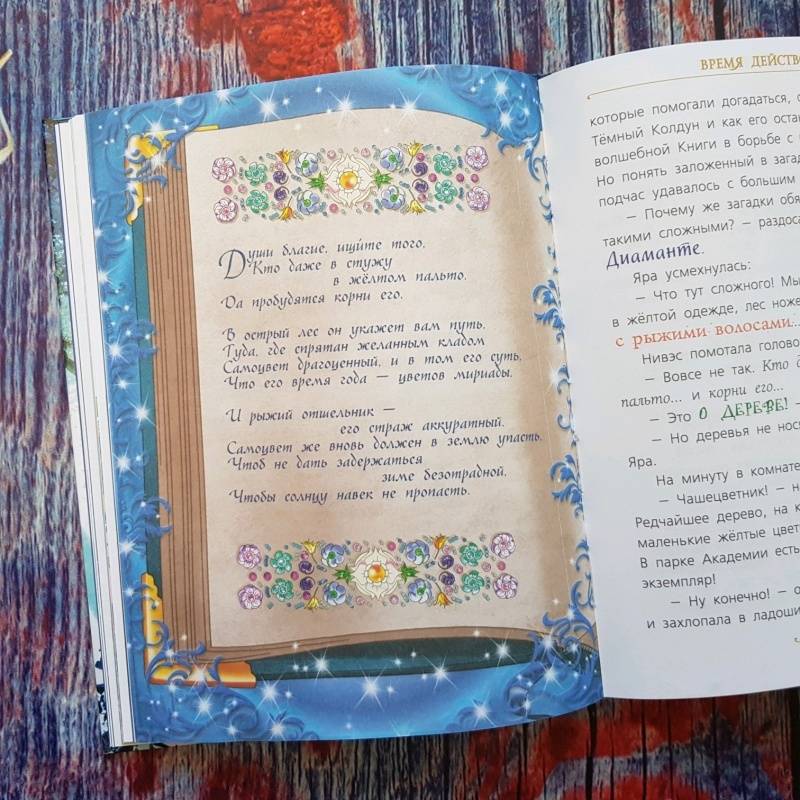 Души благие, ищите того,
Кто даже в стужу
в жёлтом пальто.
Да пробудятся корни его.
В острый лес он укажет вам путь.
Туда, где спрятан желанным кладом
Самоцвет драгоценный, и в том его суть,
Что его время года — цветов мириады.
И рыжий отшельник —
его страж аккуратный.
Самоцвет же вновь должен в землю упасть,
Чтоб не дать задержаться
зиме безотрадной,
Чтобы солнцу навек не пропасть.
ВРЕМЯ
которые помогали догадаться,
Тёмный Колдун и как его
волшебной Книги в борьбе с
Но понять заложенный в
подчас удавалось с большим
— Почему же загадки
такими сложными? —
Диаманте.
Яра усмехнулась:
— Что тут сложного!
в жёлтой одежде, лес
с рыжими волосами...
Нивэс помотала
— Вовсе не так. Кто
пальто... и корни его...
— Это О ДЕРЕВЕ! —
— Но деревья не
Яра.
На минуту в
— Чашецветник! —
Редчайшее дерево, на
маленькие жёлтые
В парке Академии есть
экземпляр!
— Ну конечно! —
и захлопала в